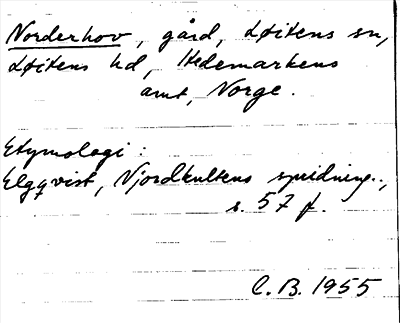 Norderhov, gård, Løitens sn,
Løitens hd, Hedemarkens
amt, Norge.
Etymologi:
Elgqvist, Njordkultens spridning.,
s. 57 f.
C.B. 1955